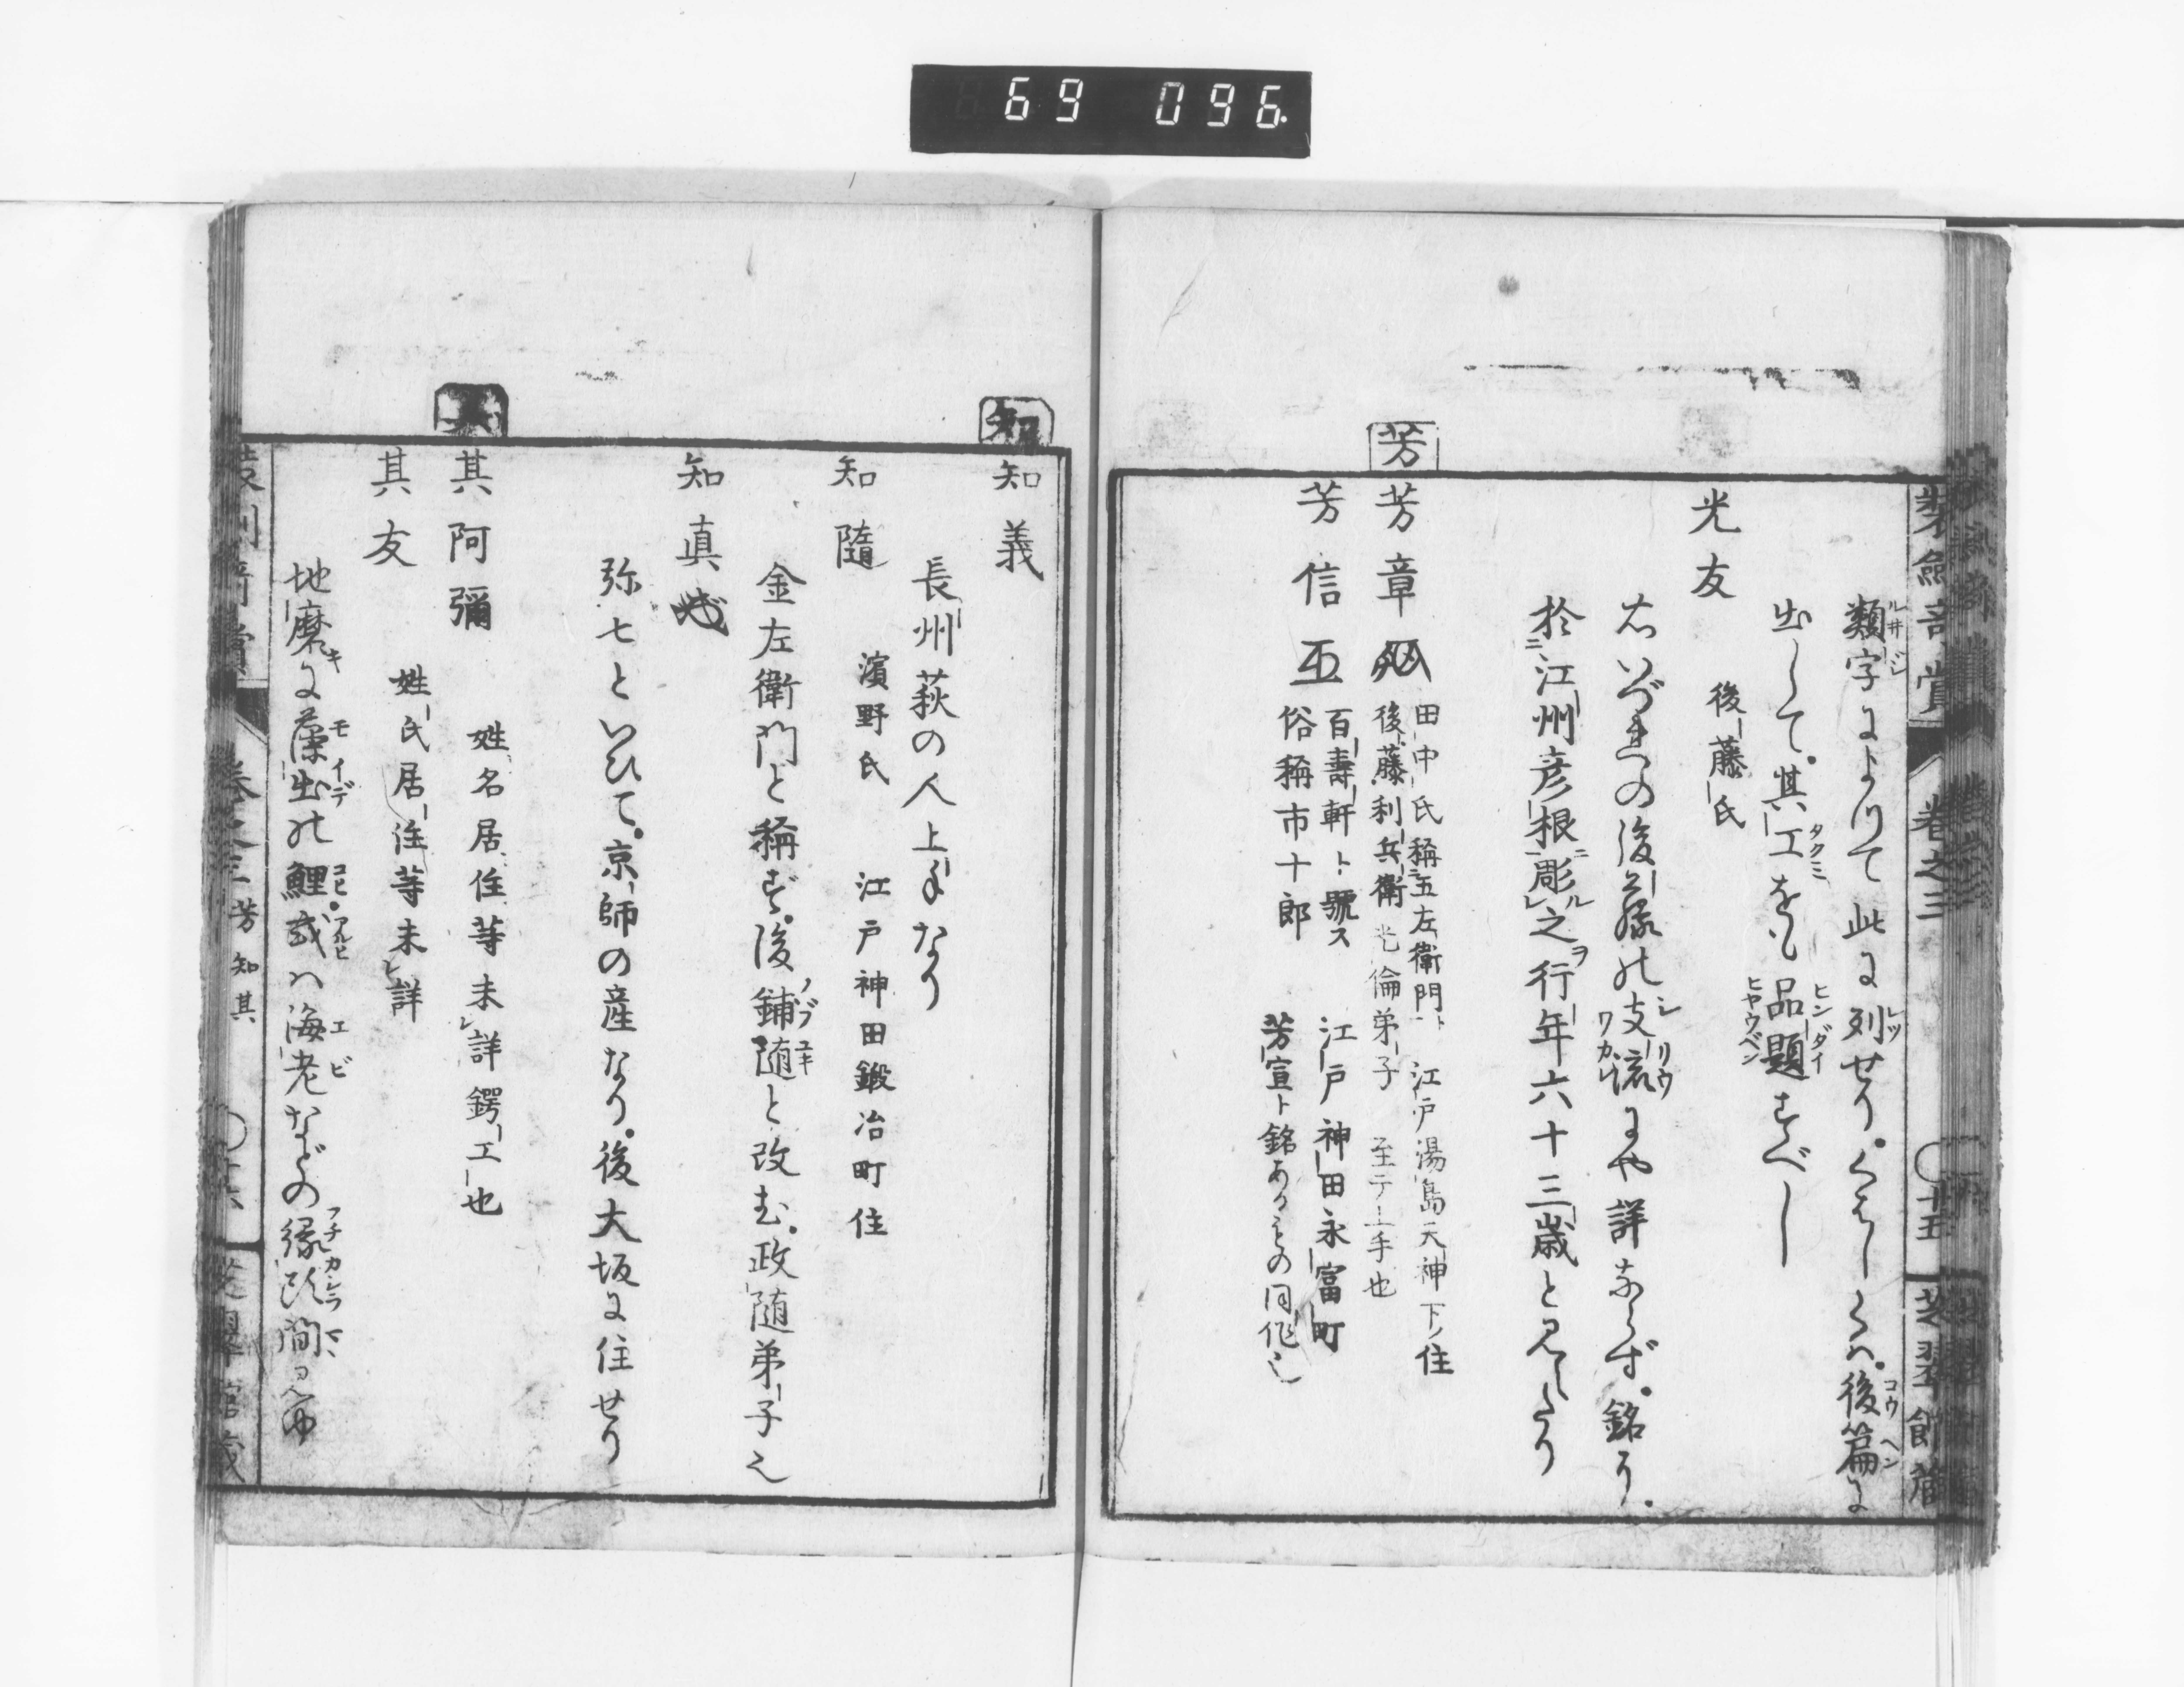 69 096
装劔奇賞 巻之三 ○十五 芝翠館蔵
類字によりて此に列せり。くはしくハ。後篇に
出して。其工をも品題すべし
光友 後藤氏
右いづれの後藤の支流にや詳ならず。銘り。
於江州彦根彫之行年六十三歳と見へたり
芳
芳章 田中氏稱五左衛門ト 江戸湯島天神下ノ住
後藤利兵衛光倫弟子 至テ上手也
芳信 百壽軒ト號ス 江戸神田永富町
俗稱市十郎 芳宣ト銘あるもの同作也
知
知義
長州萩の人上手なり
知随 濱野氏 江戸神田鍛冶町住
金左衛門と稱す。後鋪随と改む。政随弟子也
知真
弥七といひて。京師の産なり。後大坂に住せり
其
其阿彌 姓名居住等未詳鍔工也
其友 姓氏居住等未詳
地磨に藻出の鯉。或ハ海老などの縁頭間見ゆ
巻之三 芳知其